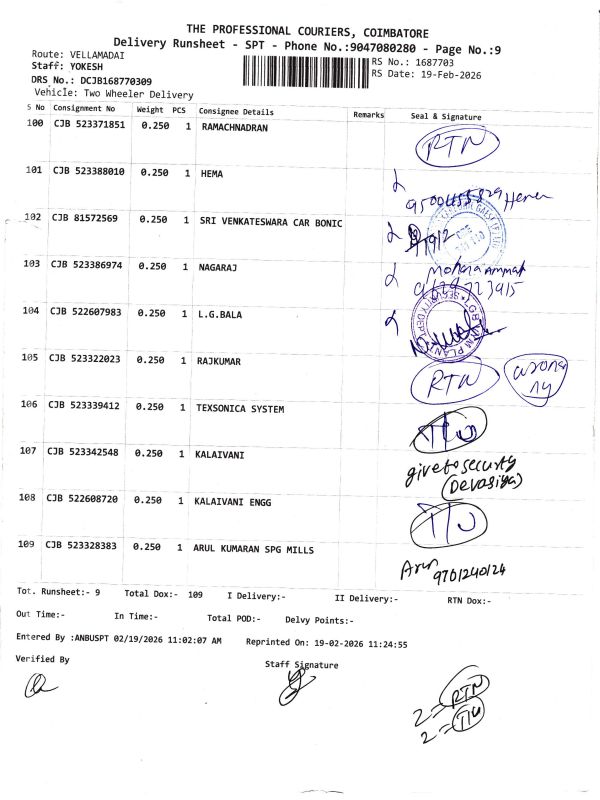 THE PROFESSIONAL COURIERS, COIMBATORE
Delivery Runsheet - SPT - Phone No.:9047080280 - Page No.:9
Route: VELLAMADAI
Staff: YOKESH
DRS No.: DCJB168770309
Vehicle: Two Wheeler Delivery
RS No.: 1687703
RS Date: 19-Feb-2026
S No Consignment No Weight PCS Consignee Details Remarks Seal & Signature
100 CJB 523371851 0.250 1 RAMACHNADRAN RTN
101 CJB 523388010 0.250 1 HEMA
Hema
102 CJB 81572569 0.250 1 SRI VENKATESWARA CAR BONIC
103 CJB 523386974 0.250 1 NAGARAJ
104 CJB 522607983 0.250 1 L.G.BALA
105 CJB 523322023 0.250 1 RAJKUMAR RTN
106 CJB 523339412 0.250 1 TEXSONICA SYSTEM
107 CJB 523342548 0.250 1 KALAIVANI
give to security
(Devasiya)
108 CJB 522608720 0.250 1 KALAIVANI ENGG
109 CJB 523328383 0.250 1 ARUL KUMARAN SPG MILLS
9701240124
Tot. Runsheet:- 9 Total Dox:- 109 I Delivery:- II Delivery:- RTN Dox:-
Out Time:- In Time:- Total POD:- Delvy Points:-
Entered By :ANBUSPT 02/19/2026 11:02:07 AM Reprinted On: 19-02-2026 11:24:55
Verified By Staff Signature
2 = RTN
2 =